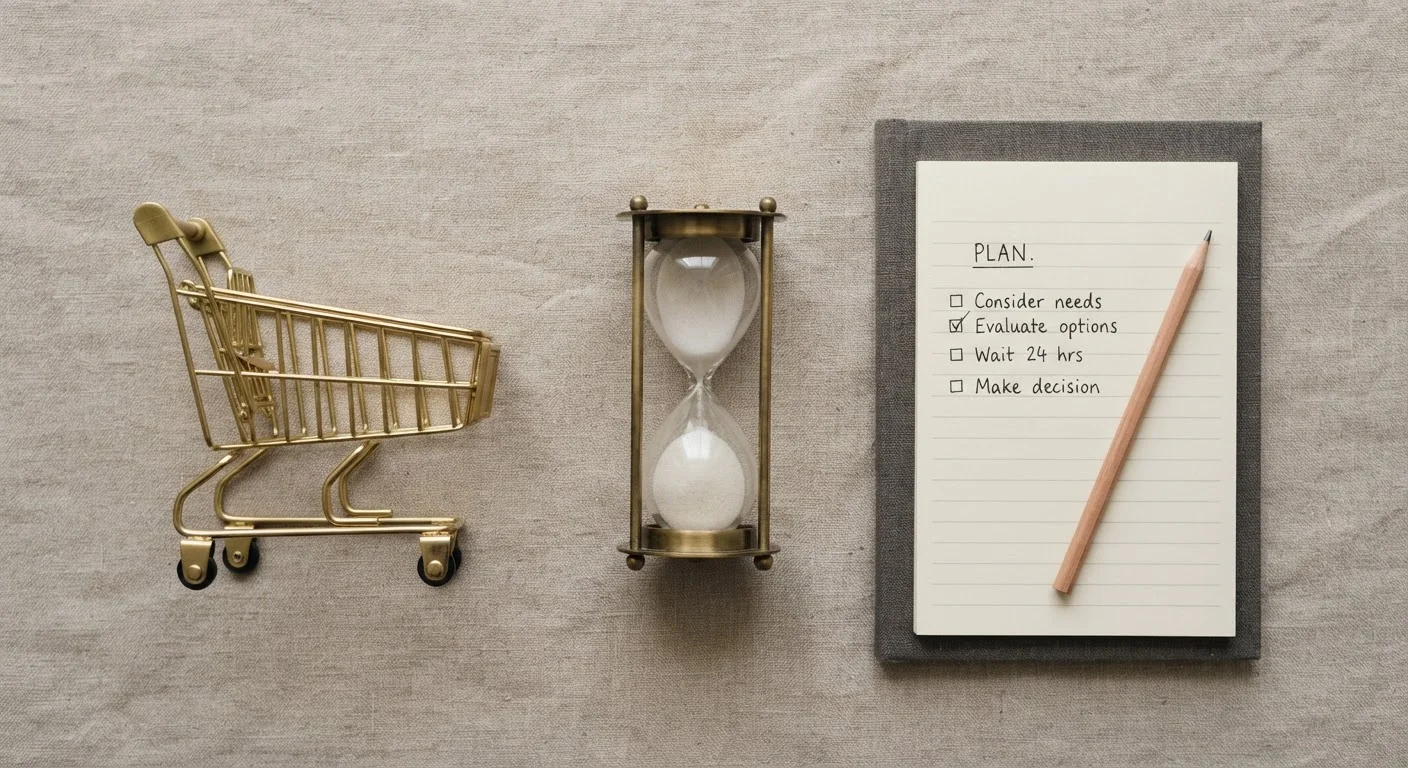 PLAN.
☐ Consider needs
☑ Evaluate options
☐ Wait 24 hrs
☐ Make decision